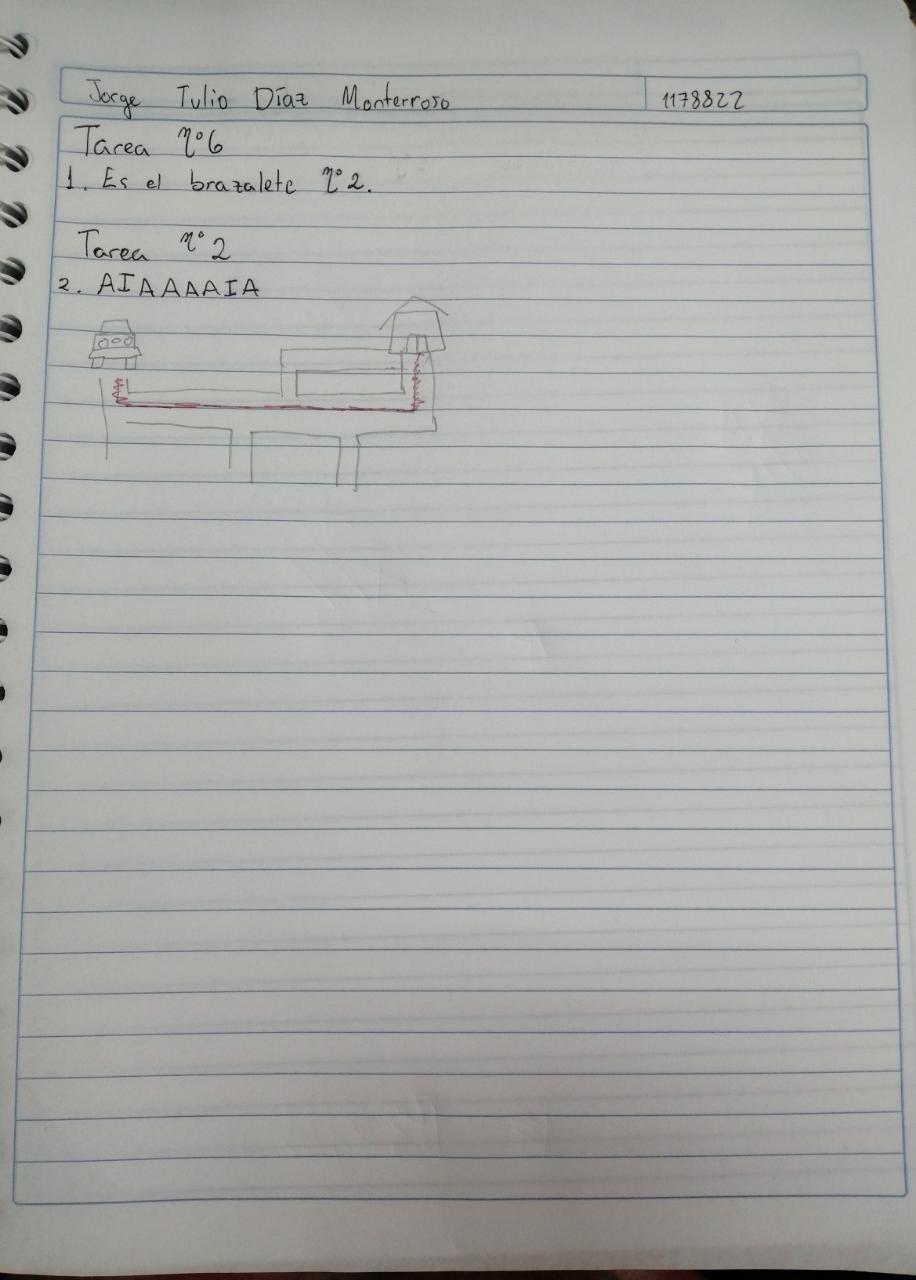 Jorge Tulio Díaz Monterroso 1178822
Tarea n°6
1. Es el brazalete n°2.
Tarea n°2
2. AIAAAAIA